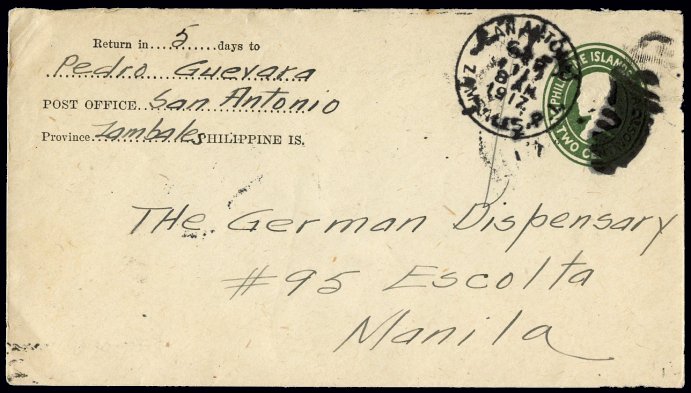 Return in 5 days to
Pedro Guevara
POST OFFICE San Antonio
Province Zambales PHILIPPINE IS.
SAN ANTONIO
8 AM
1917
PHILIPPINE ISLANDS
TWO
The German Dispensary
#95 Escolta
Manila